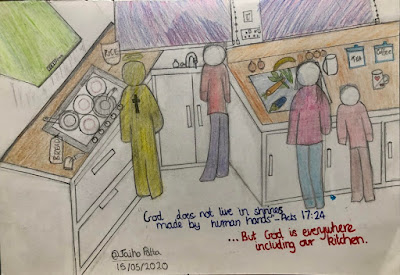 RICE
Tea
Coffee
BREAD
God does not live in shrines
made by human hands"-Acts 17:24
...But God is everywhere
including our kitchen.
15/05/2020